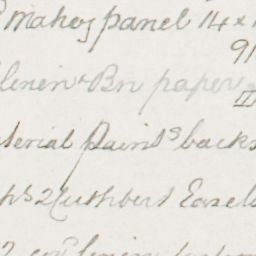 Mahog panel 14 x
9
linen & Bn paper
terial paints backs
hs 2 Cuthbert Easels
linen